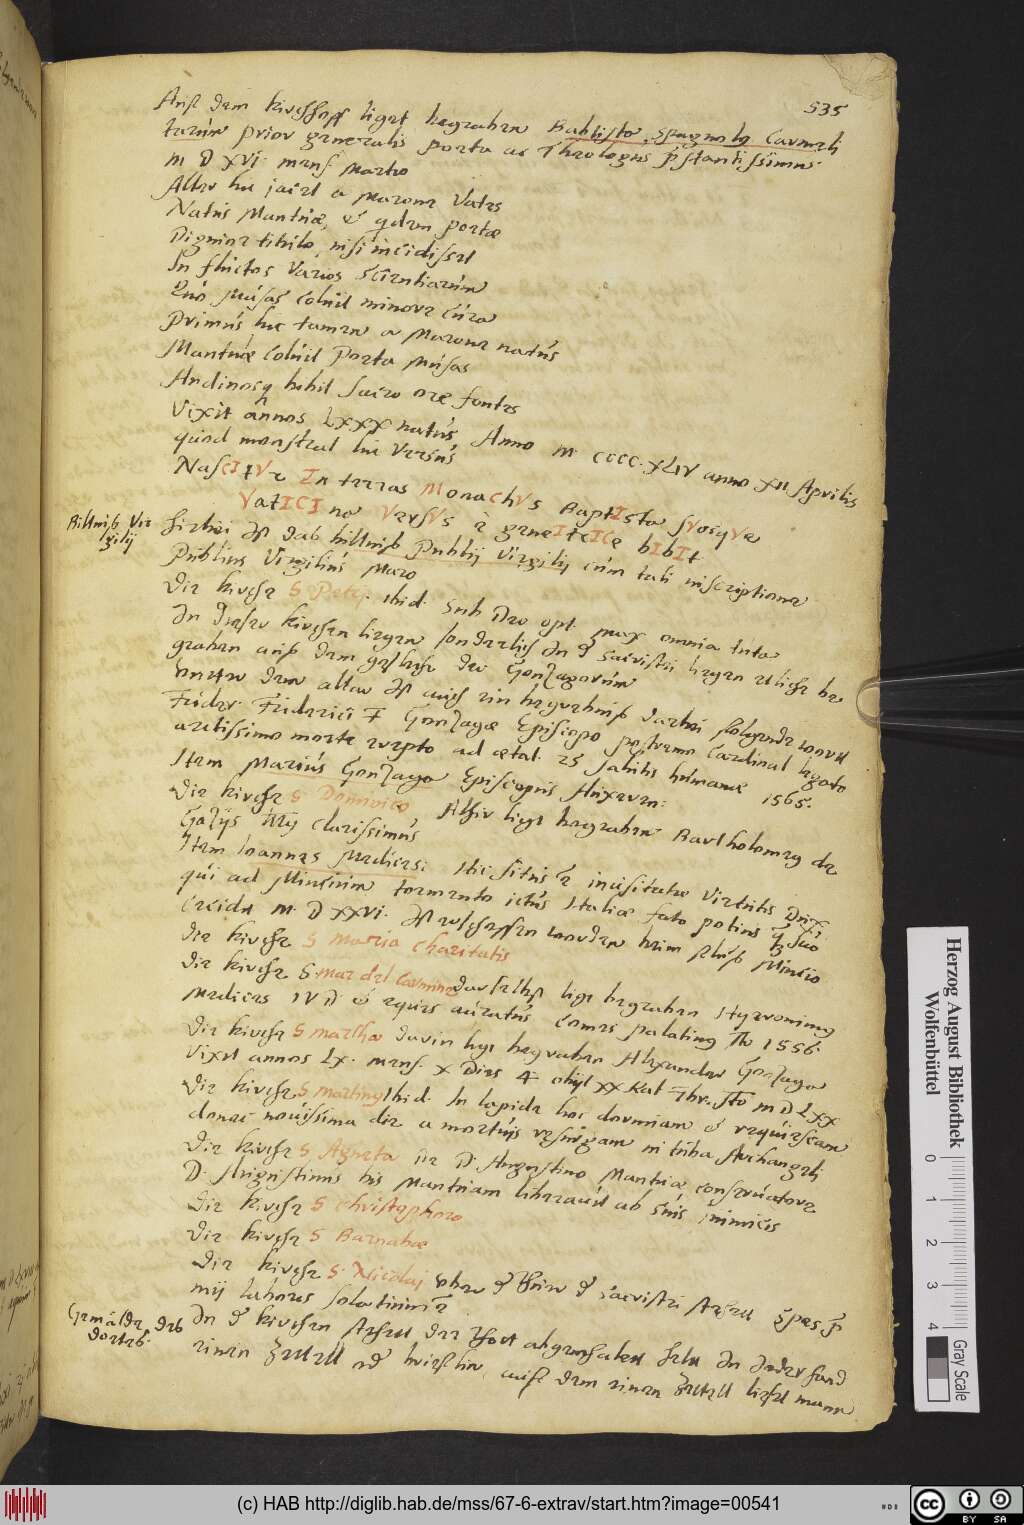 535
Auff dem kirchhoff ligt begraben Baptista Spagnolus Carmeli
tarum prior generalis poeta ac Theologus pstantissimus
M D XVI mens Martio
Alter hic iacet a Marone Vates
Natus Mantuæ, et qdem poetæ
Digniore titulo, nisi incidisset
In fluctus varios scientiarum
Quo Musas coluit minore cura
Primus hic tamen a Marone natus
Mantuæ coluit poeta Musas
Andinosq bibit sacro ore fontes
Vixit annos LXXX natus Anno M CCCC XLIV anno XII Aprilis
quod monstrat hic versus
NasCItVr In terras MonaChVs BaptIsta sVosqVe
VatICIno VersVs è geneItrICe bIbIt
Biltnuß Vir
gilij
Hirbei ist das biltnuß Publij Virgilij cum tali inscriptione
Publius Virgilius Maro
Die kirche S Petri. Ibid. Sub Deo opt. max omnia tuta
In dieser kirchen liegen sonderlich In d sacristei liegen etliche be
graben auß dem geschlecht der Gonzagarum
unter dem altar ist auch ein begrebnuß darbei folgende wort
Frider. Friderici F Gonzagæ Episcopo postremo Cardinal legato
acutissimo morte erepto ad ætat. 25 salutis humanæ 1565.
Item Marius Gonzaga Episcopus Auxeren:
Die kirche S Dominico Alhir ligt begraben Bartholomeus de
clarissimus
Item Ioannes Medices: Hic situs ē inusitatæ virtutis Dux
qui ad Mincium tormento ictus Italiæ fato potius q suo
cecidit M. D XXVI. ist erschossen worden beim fluß Mincio
Die kirche S Maria charitatis
Die kirche S. Mar del Carmine daselbst ligt begraben Hyeronimus
Medices IV D et eques auratus Comes palatinus Ao 1556.
Die kirche S Martha darin ligt begraben Alexander Gonzaga
Vixit annos LX. mens. X Dies 4 obijt XX Kal M D LXX
Die kirche S Martinus Ibid. In lapide hoc dormiam et requiescam
donec novissima die a mortuis resurgam in tuba Archangeli
Die kirche S Agneta D. Augustino Mantuæ conservatore
D. Augustinus his Mantuam liberavit ab suis inimicis
Die kirche S Christophoro
Die kirche S Barnabæ
Die kirche S. Nicolaj ober d thur d sacristei stehet Spes p
mij labores solatium ē
Gemälde deß
dortes.
In d kirchen stehett der In Jeder hand
einen zettell briefflin, auff dem einen zettell lieset mann
Herzog August Bibliothek
Wolfenbüttel
0 1 2 3 4
Gray Scale
(c) HAB http://diglib.hab.de/mss/67-6-extrav/start.htm?image=00541
BY SA